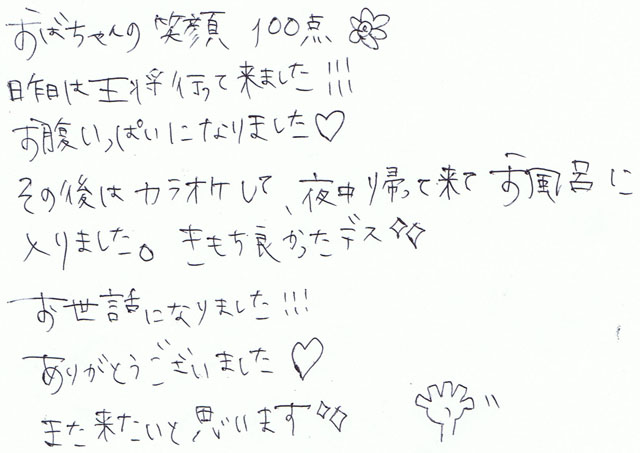 おばちゃんの笑顔 100点
昨日は王将行って来ました!!!
お腹いっぱいになりました♡
その後はカラオケして、夜中帰って来てお風呂に
入りました。きもち良かったデス
お世話になりました!!!
ありがとうございました♡
また来たいと思います